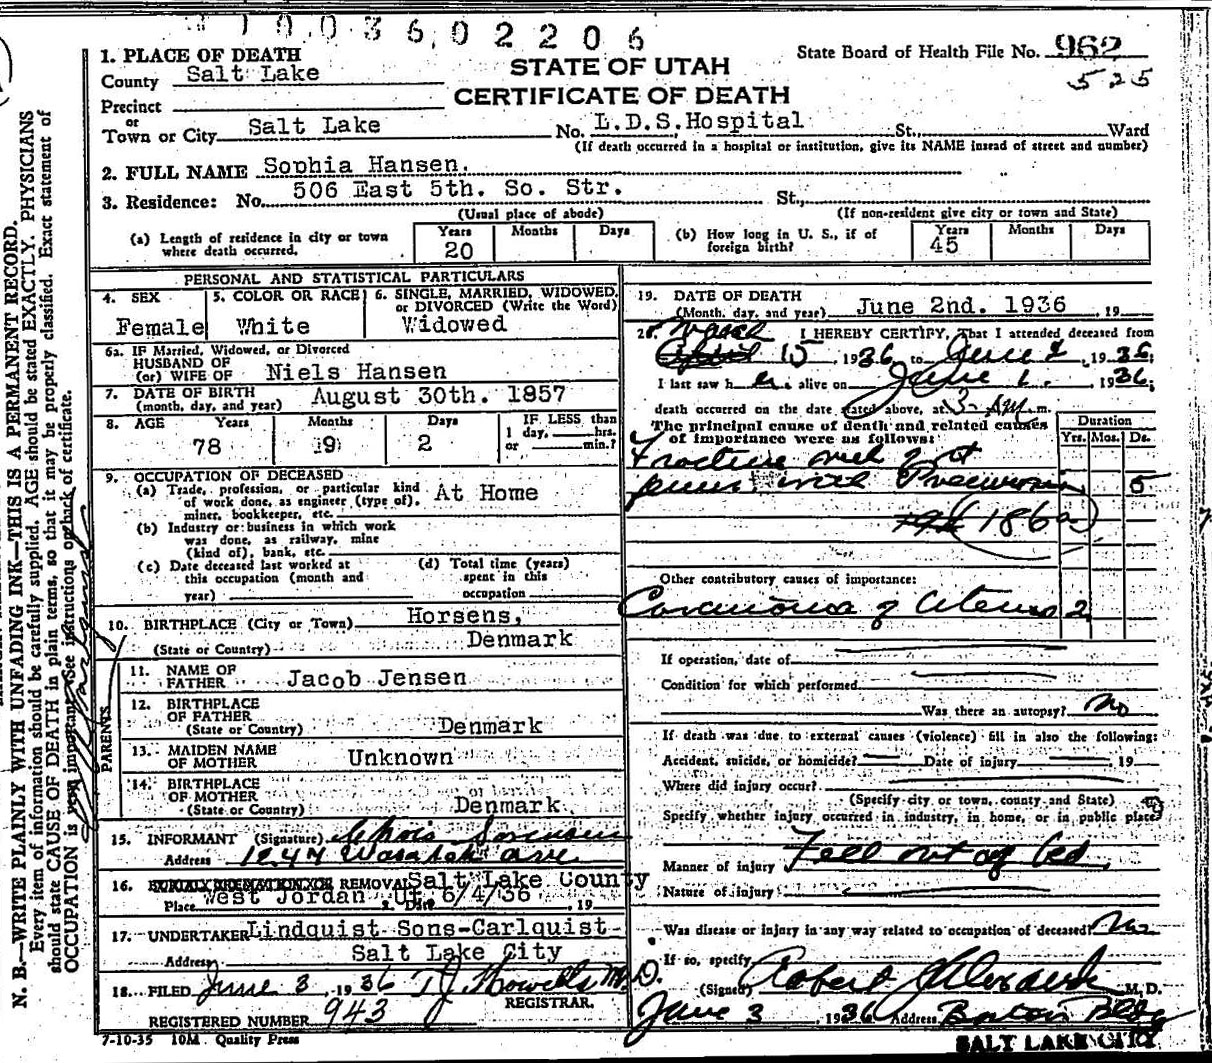 1003602206
1. PLACE OF DEATH
County Salt Lake
STATE OF UTAH
State Board of Health File No. 962
525
Precinct
or
CERTIFICATE OF DEATH
Town or City Salt Lake No. L.D.S.Hospital St., Ward
(If death occurred in a hospital or institution, give its NAME insead of street and number)
2. FULL NAME Sophia Hansen.
3. Residence: No. 506 East 5th. So. Str. St.,
(Usual place of abode) (If non-resident give city or town and State)
(a) Length of residence in city or town where death occurred. Years 20 Months Days
(b) How long in U. S., if of foreign birth? Years 45 Months Days
PERSONAL AND STATISTICAL PARTICULARS
4. SEX Female
5. COLOR OR RACE White
6. SINGLE, MARRIED, WIDOWED, or DIVORCED (Write the Word) Widowed
6a. IF Married, Widowed, or Divorced
HUSBAND OF
(or) WIFE OF Niels Hansen
7. DATE OF BIRTH
(month, day, and year) August 30th. 1857
8. AGE Years 78 Months 9 Days 2 IF LESS than 1 day, hrs. or min.?
9. OCCUPATION OF DECEASED
(a) Trade, profession, or particular kind
of work done, as engineer (type of), At Home
miner, bookkeeper, etc.
(b) Industry or business in which work
was done, as railway, mine
(kind of), bank, etc.
(c) Date deceased last worked at this occupation (month and year)
(d) Total time (years) spent in this occupation
10. BIRTHPLACE (City or Town) Horsens,
(State or Country) Denmark
PARENTS
11. NAME OF
FATHER Jacob Jensen
12. BIRTHPLACE
OF FATHER
(State or Country) Denmark
13. MAIDEN NAME
OF MOTHER Unknown
14. BIRTHPLACE
OF MOTHER
(State or Country) Denmark
15. INFORMANT (Signature) Sorensen
Address 1247 Wasatch Ave
16. REMOVAL Salt Lake County
Place West Jordan, Ut. Date 6/4/36, 19
17. UNDERTAKER Lindquist Sons-Carlquist-
Address Salt Lake City
18. FILED June 3, 1936 T J Howells M.D.
REGISTRAR.
REGISTERED NUMBER 943
7-10-35 10M Quality Press
19. DATE OF DEATH
(Month, day, and year) June 2nd. 1936, 19
20. I HEREBY CERTIFY, That I attended deceased from
March
April 15, 1936 to June 2, 1936;
I last saw her alive on June 1. 1936;
death occurred on the date stated above, at 3 am m.
The principal cause of death and related causes
of importance were as follows:
Duration
Yrs. Mos. Ds.
Fracture neck of rt
femur with 5
186a
Other contributory causes of importance:
Carcinoma of Uterus 2
If operation, date of
Condition for which performed
Was there an autopsy? No
If death was due to external causes (violence) fill in also the following:
Accident, suicide, or homicide? Date of injury 19
Where did injury occur?
(Specify city or town, county and State)
Specify whether injury occurred in industry, in home, or in public place
Manner of injury Fell out of bed.
Nature of injury
Was disease or injury in any way related to occupation of deceased? No
If so, specify
(Signed) Robert Alexander M. D.
June 3, 1936 Address Boston Bldg
SALT LAKE CITY
N. B.—WRITE PLAINLY WITH UNFADING INK—THIS IS A PERMANENT RECORD.
Every item of information should be carefully supplied. AGE should be stated EXACTLY. PHYSICIANS
should state CAUSE OF DEATH in plain terms, so that it may be properly classified. Exact statement of
OCCUPATION is very important. See instructions on back of certificate.